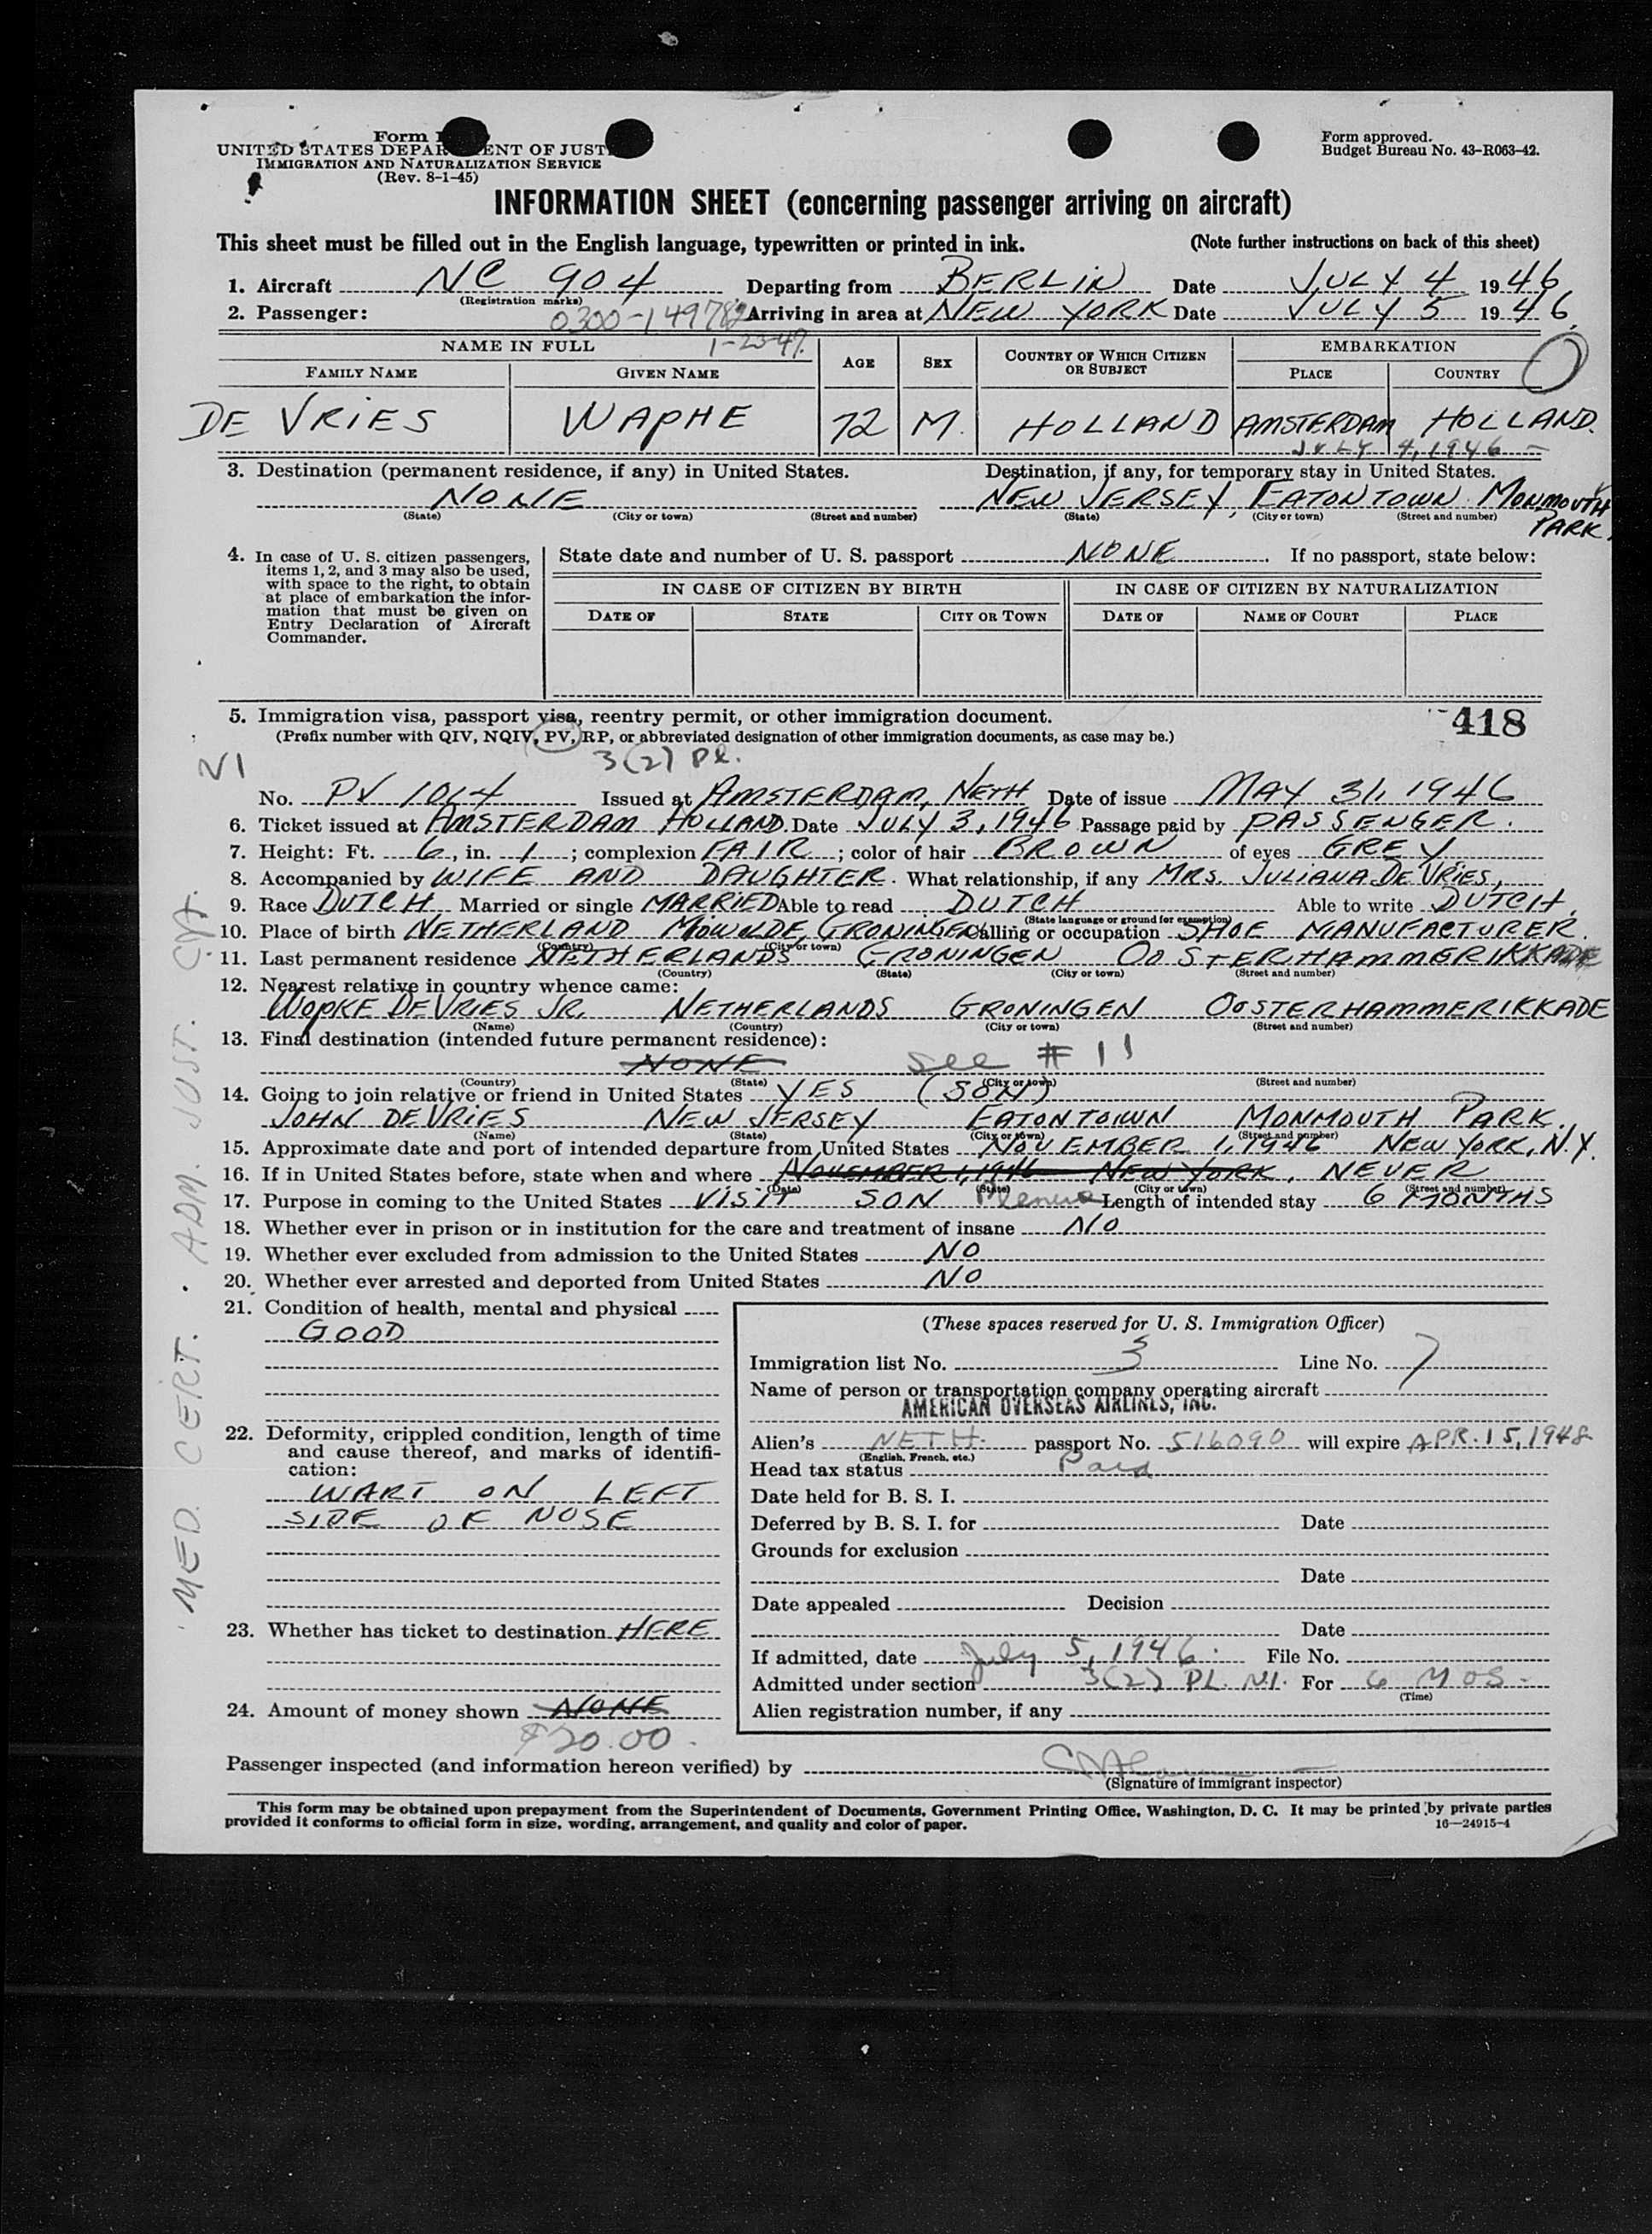 Form I
UNITED STATES DEPARTMENT OF JUST
IMMIGRATION AND NATURALIZATION SERVICE
(Rev. 8-1-45)
Form approved.
Budget Bureau No. 43-R063-42.
INFORMATION SHEET (concerning passenger arriving on aircraft)
This sheet must be filled out in the English language, typewritten or printed in ink. (Note further instructions on back of this sheet)
1. Aircraft NC 904 Departing from BERLIN Date JULY 4 1946
(Registration marks)
2. Passenger: 0300-149782 Arriving in area at NEW YORK Date JULY 5 1946.
NAME IN FULL 1-23-47. AGE SEX COUNTRY OF WHICH CITIZEN OR SUBJECT EMBARKATION
FAMILY NAME GIVEN NAME PLACE COUNTRY
DE VRIES WAPHE 72 M. HOLLAND AMSTERDAM HOLLAND.
JULY 4, 1946
3. Destination (permanent residence, if any) in United States. Destination, if any, for temporary stay in United States.
NONE NEW JERSEY, EATONTOWN MONMOUTH PARK.
(State) (City or town) (Street and number) (State) (City or town) (Street and number)
4. In case of U. S. citizen passengers, items 1, 2, and 3 may also be used, with space to the right, to obtain at place of embarkation the information that must be given on Entry Declaration of Aircraft Commander.
State date and number of U. S. passport NONE If no passport, state below:
IN CASE OF CITIZEN BY BIRTH IN CASE OF CITIZEN BY NATURALIZATION
DATE OF STATE CITY OR TOWN DATE OF NAME OF COURT PLACE
5. Immigration visa, passport visa, reentry permit, or other immigration document. 418
(Prefix number with QIV, NQIV, PV, RP, or abbreviated designation of other immigration documents, as case may be.)
3(2) Pl.
No. PV 1014 Issued at AMSTERDAM, NETH Date of issue MAY 31, 1946
6. Ticket issued at AMSTERDAM HOLLAND. Date JULY 3, 1946 Passage paid by PASSENGER.
7. Height: Ft. 6, in. 1; complexion FAIR; color of hair BROWN of eyes GREY
8. Accompanied by WIFE AND DAUGHTER. What relationship, if any MRS. JULIANA DE VRIES,
9. Race DUTCH Married or single MARRIED Able to read DUTCH Able to write DUTCH.
(State language or ground for exemption)
10. Place of birth NETHERLAND GRONINGEN Calling or occupation SHOE MANUFACTURER.
(Country) (City or town)
11. Last permanent residence NETHERLANDS GRONINGEN OOSTERHAMMERIKKADE
(Country) (State) (City or town) (Street and number)
12. Nearest relative in country whence came:
WOPKE DEVRIES JR. NETHERLANDS GRONINGEN OOSTERHAMMERIKKADE
(Name) (Country) (City or town) (Street and number)
13. Final destination (intended future permanent residence):
NONE see # 11
(Country) (State) (City or town) (Street and number)
14. Going to join relative or friend in United States YES (SON)
JOHN DEVRIES NEW JERSEY EATONTOWN MONMOUTH PARK.
(Name) (State) (City or town) (Street and number)
15. Approximate date and port of intended departure from United States NOVEMBER 1, 1946 NEW YORK, N.Y.
16. If in United States before, state when and where NOVEMBER 1, 1946 NEW YORK, NEVER
(Date) (State) (City or town) (Street and number)
17. Purpose in coming to the United States VISIT SON Length of intended stay 6 MONTHS
18. Whether ever in prison or in institution for the care and treatment of insane NO
19. Whether ever excluded from admission to the United States NO
20. Whether ever arrested and deported from United States NO
21. Condition of health, mental and physical
GOOD
22. Deformity, crippled condition, length of time and cause thereof, and marks of identification:
WART ON LEFT
SIDE OF NOSE
23. Whether has ticket to destination HERE
24. Amount of money shown NONE
$20.00
(These spaces reserved for U. S. Immigration Officer)
Immigration list No. 3 Line No. 7
Name of person or transportation company operating aircraft
AMERICAN OVERSEAS AIRLINES, INC.
Alien's NETH. passport No. 516090 will expire APR. 15, 1948
(English, French, etc.)
Head tax status Paid
Date held for B. S. I.
Deferred by B. S. I. for Date
Grounds for exclusion
Date
Date appealed Decision
Date
If admitted, date July 5, 1946. File No.
Admitted under section 3(2) PL. N.I. For 6 MOS
(Time)
Alien registration number, if any
Passenger inspected (and information hereon verified) by
(Signature of immigrant inspector)
This form may be obtained upon prepayment from the Superintendent of Documents, Government Printing Office, Washington, D. C. It may be printed by private parties
provided it conforms to official form in size, wording, arrangement, and quality and color of paper. 16—24915-4
MED. CERT. ADM. JUST.